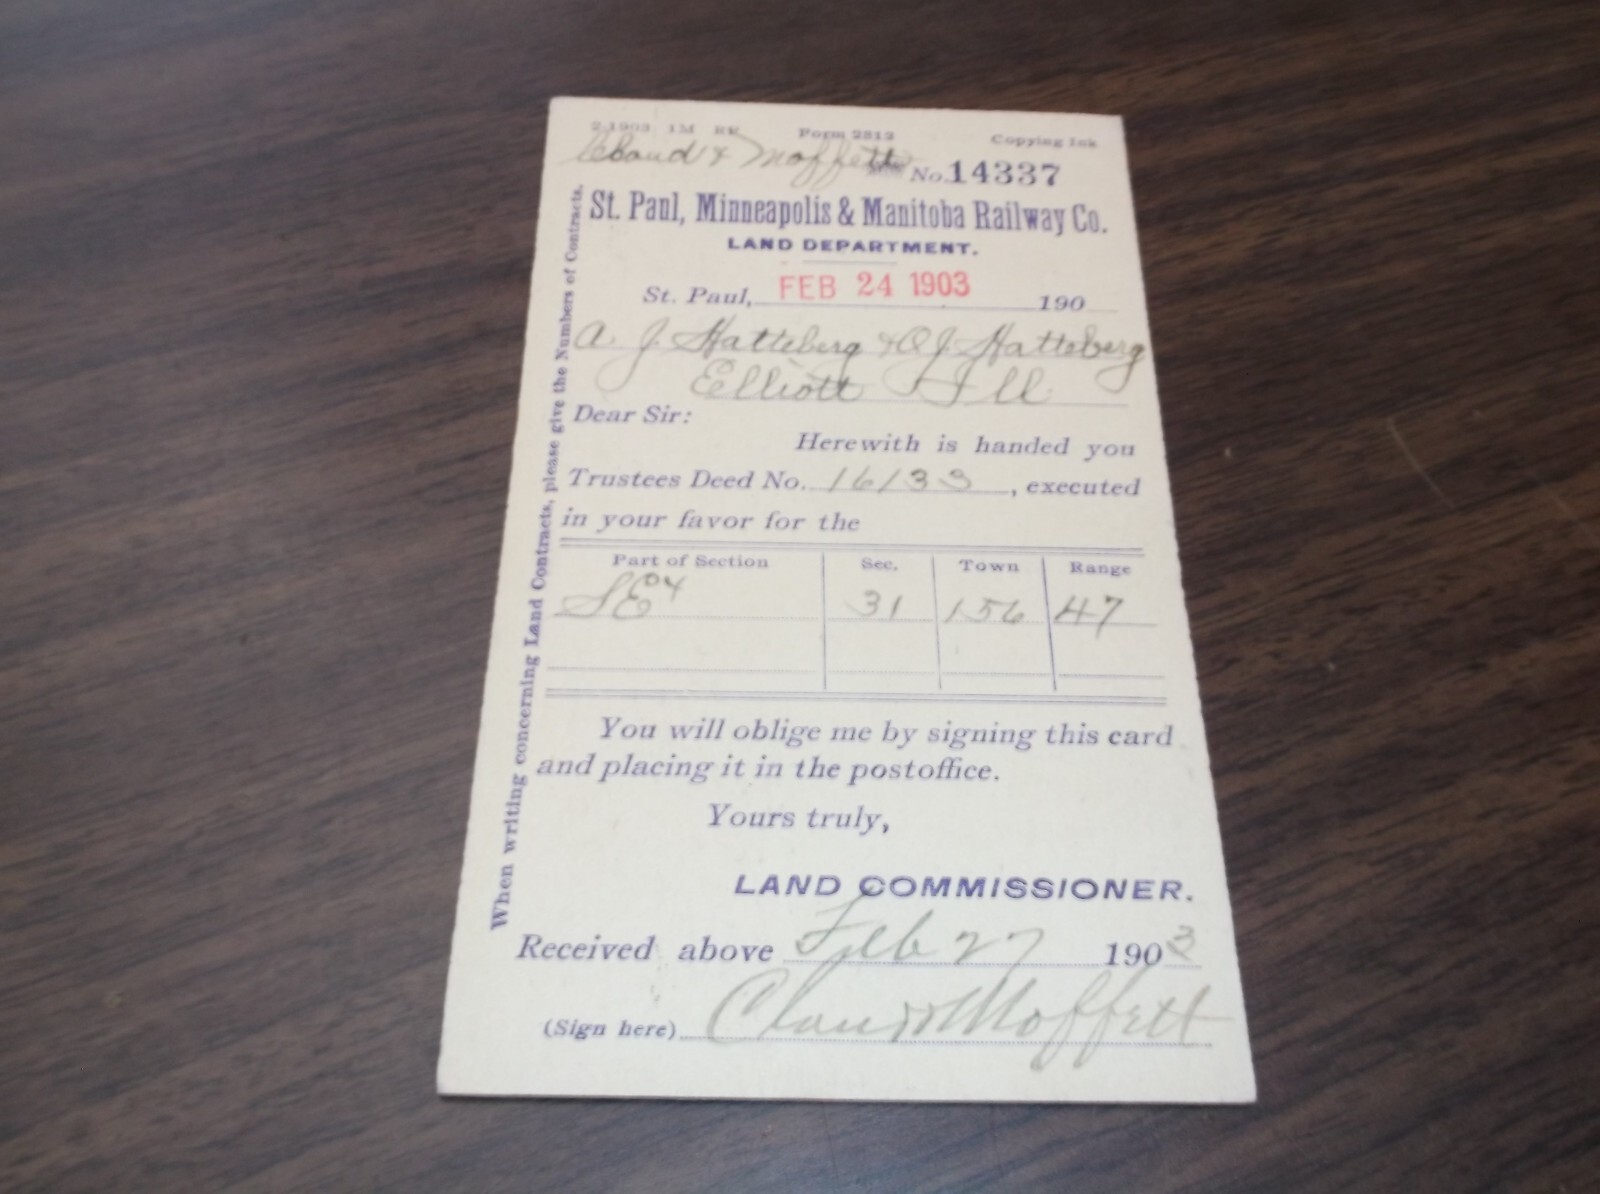 2-1903 1M RK Form 2812 Copying Ink
& Moffett No. 14337
St. Paul, Minneapolis & Manitoba Railway Co.
LAND DEPARTMENT.
St. Paul, FEB 24 1903 190
A. J. Hatteberg & O J. Hatteberg
Elliott Ill
Dear Sir:
Herewith is handed you
Trustees Deed No. 16133, executed
in your favor for the
Part of Section Sec. Town Range
SE4 31 156 47
You will oblige me by signing this card
and placing it in the postoffice.
Yours truly,
LAND COMMISSIONER.
Received above Feb 27 1903
(Sign here) Moffett
When writing concerning Land Contracts, please give the Numbers of Contracts.